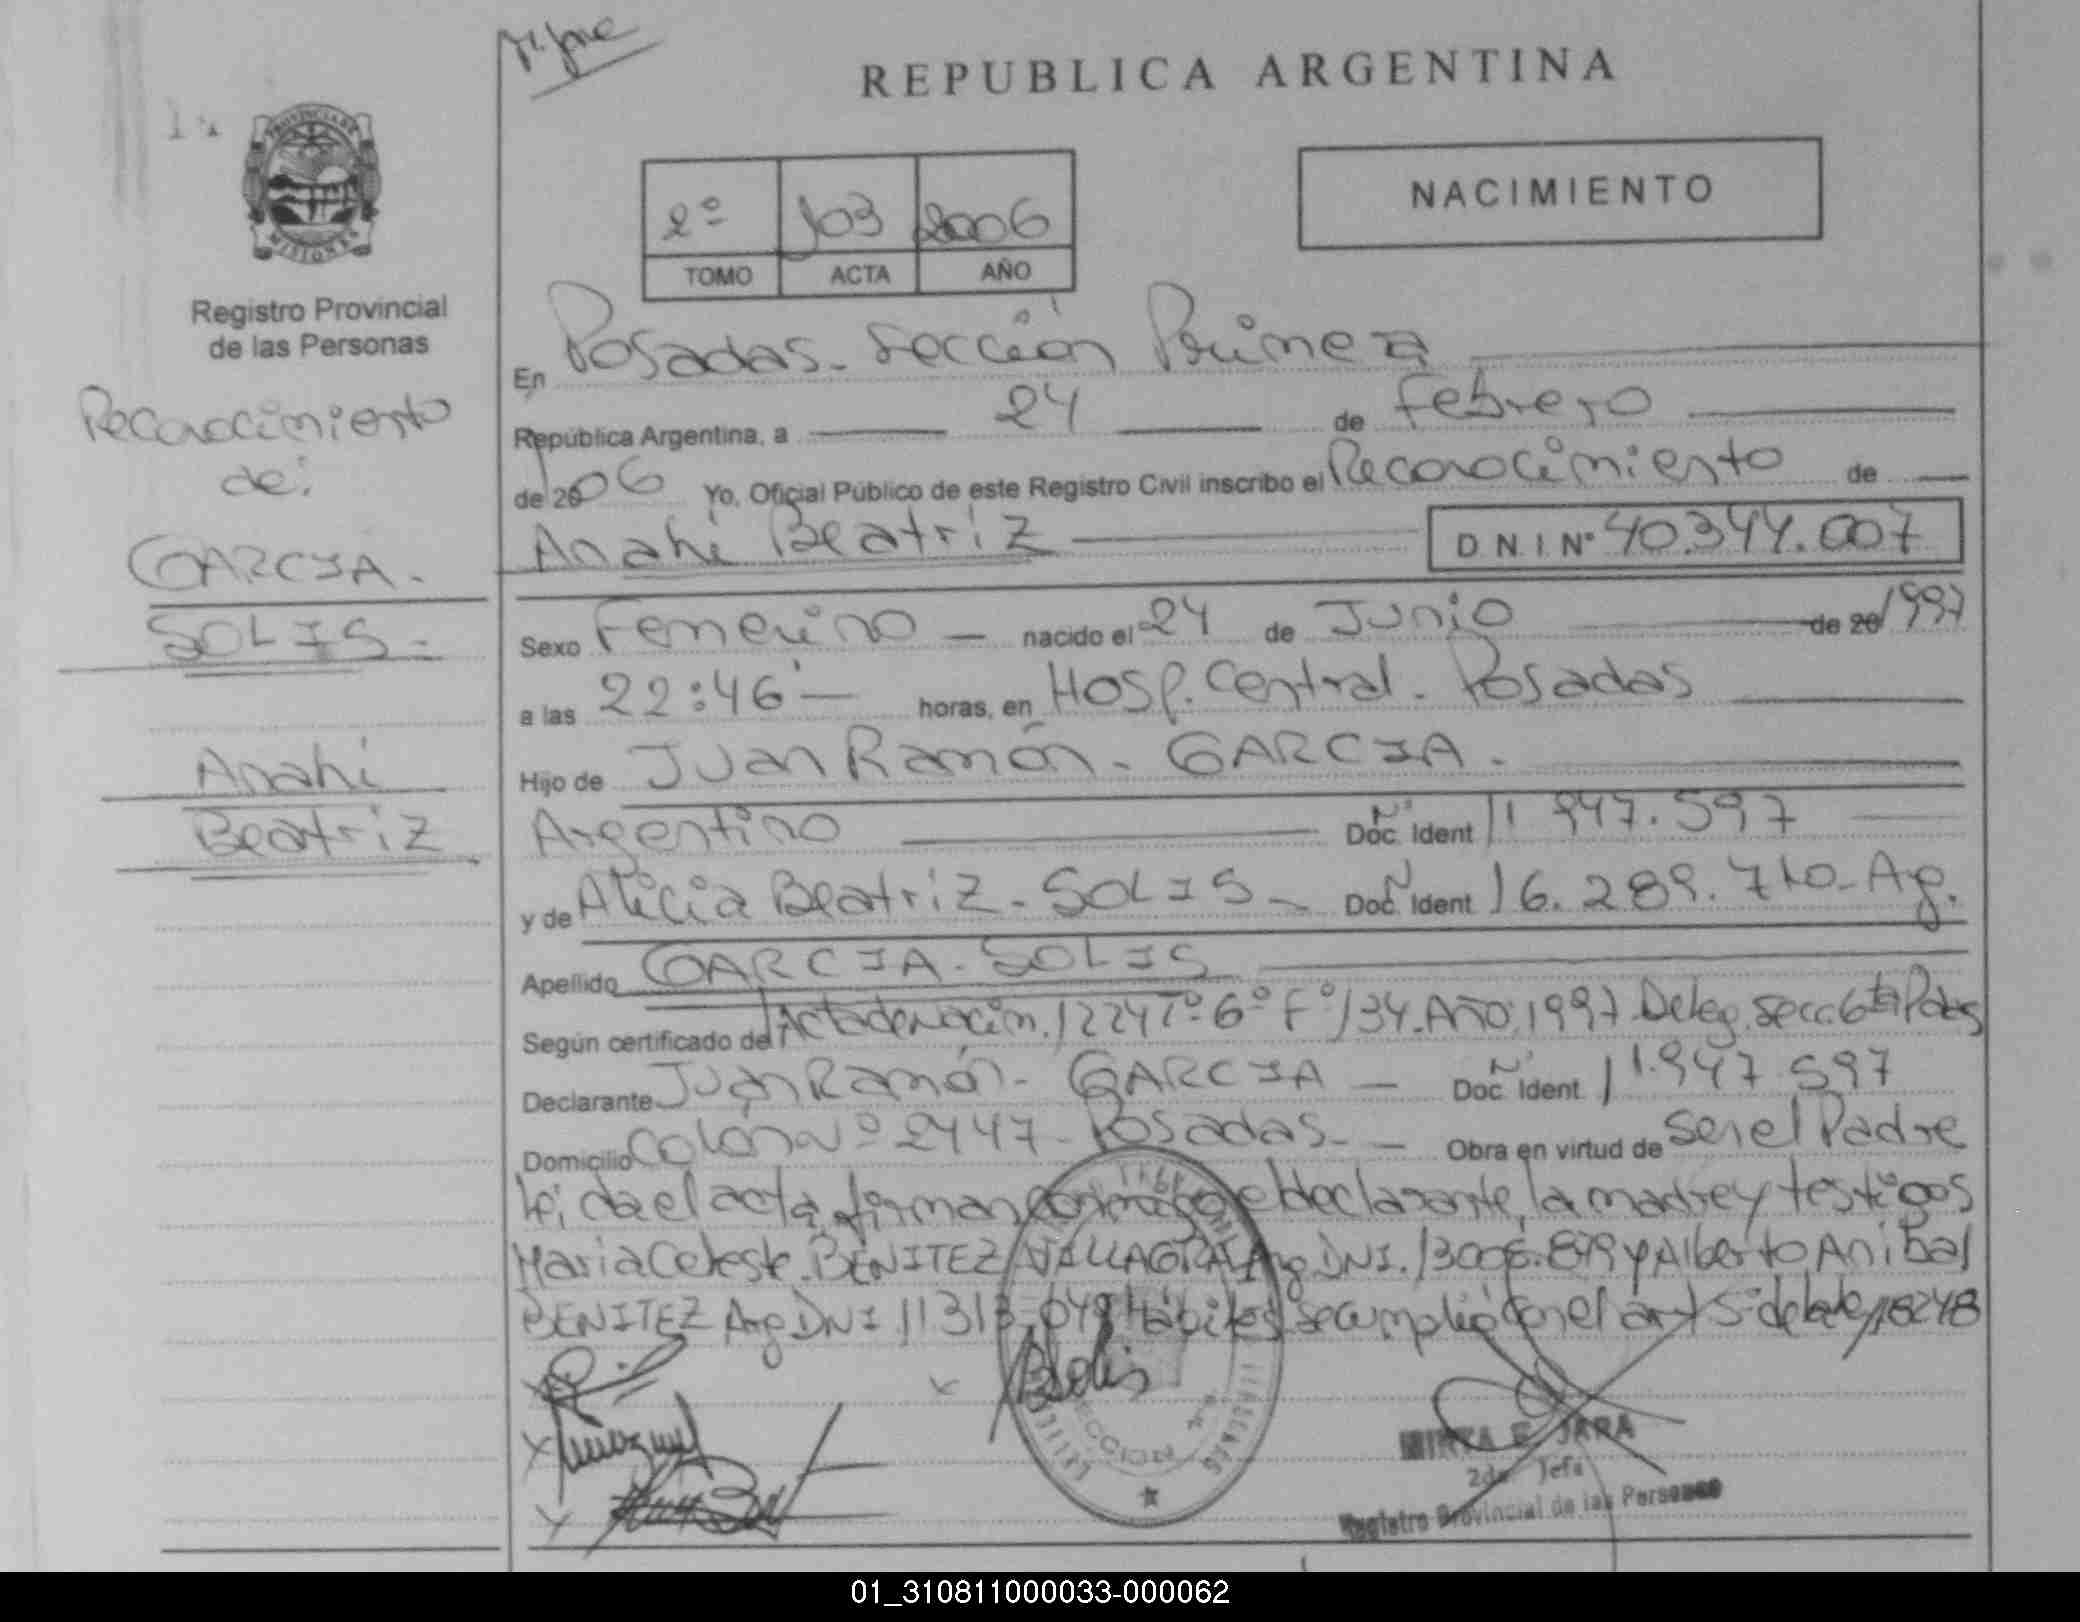 REPUBLICA ARGENTINA
PROVINCIA DE
MISIONES
Registro Provincial
de las Personas
2º 103 2006
TOMO ACTA AÑO
NACIMIENTO
Reconocimiento
de:
GARCIA.
SOLIS-
Anahi
Beatriz
En Posadas. Sección Primera
República Argentina, a 24 de Febrero
de 2006 Yo, Oficial Público de este Registro Civil inscribo el Reconocimiento de
Anahi Beatriz D N I Nº 40.344.007
Sexo Femenino nacido el 24 de Junio de 20 1997
a las 22:46' horas, en Hosp. Central. Posadas
Hijo de Juan Ramón. GARCIA.
Argentino Doc. Ident 11 947.597
y de Alicia Beatriz. SOLIS Doc. Ident 16.289.710-Ag.
Apellido GARCIA. SOLIS
Según certificado de Acta de Nacim. 1224 Tº 6º Fº 134. Año 1997 Deleg. Secc. 6ta Pdas
Declarante Juan Ramón. GARCIA Doc. Ident 11.947 597
Domicilio Colón Nº 2447. Posadas. Obra en virtud de ser el Padre
Leida el acta, firman conmigo el declarante, la madre y testigos
Maria Celeste. BENITEZ VILLAGRA Arg DNI. y Alberto Anibal
BENITEZ Arg DNI Hábiles. se cumplió con el art 5º de la ley 18248
MIRTA E. JARA
2da Jefa
Registro Provincial de las Personas
01_310811000033-000062